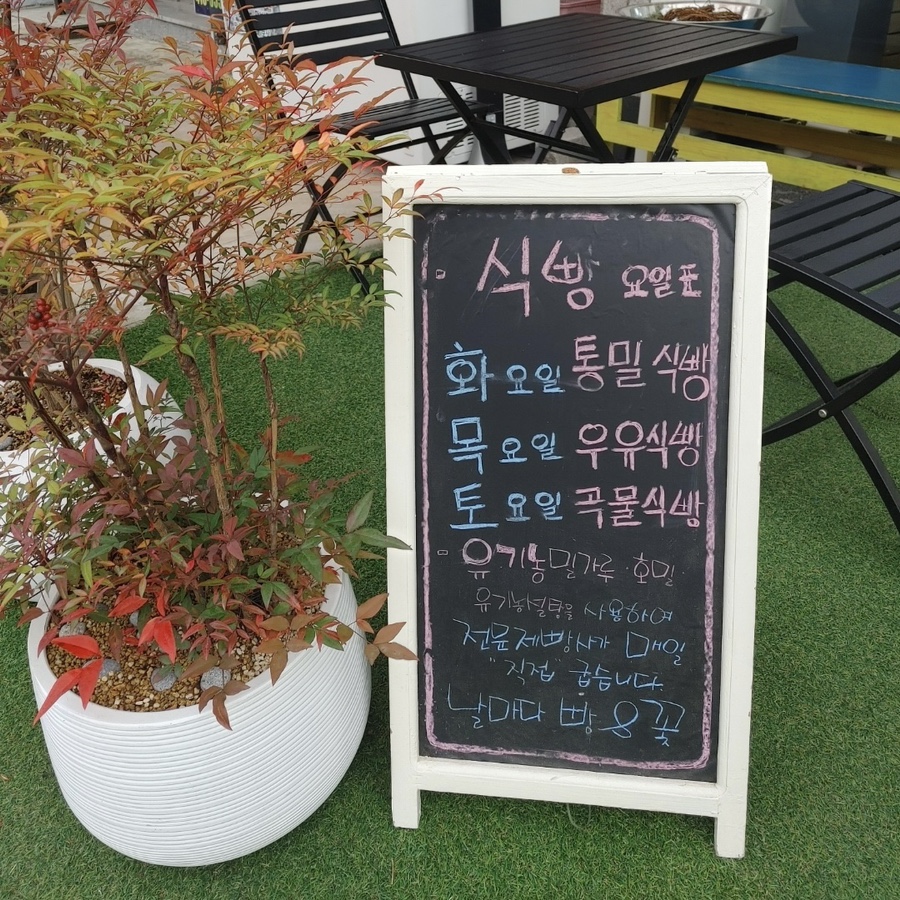 식빵 요일표
화요일 통밀 식빵
목요일 우유식빵
토요일 곡물식빵
유기농밀가루·호밀
유기농설탕을 사용하여
전문제빵사가 매일
"직접" 굽습니다.
날마다 빵 & 꽃